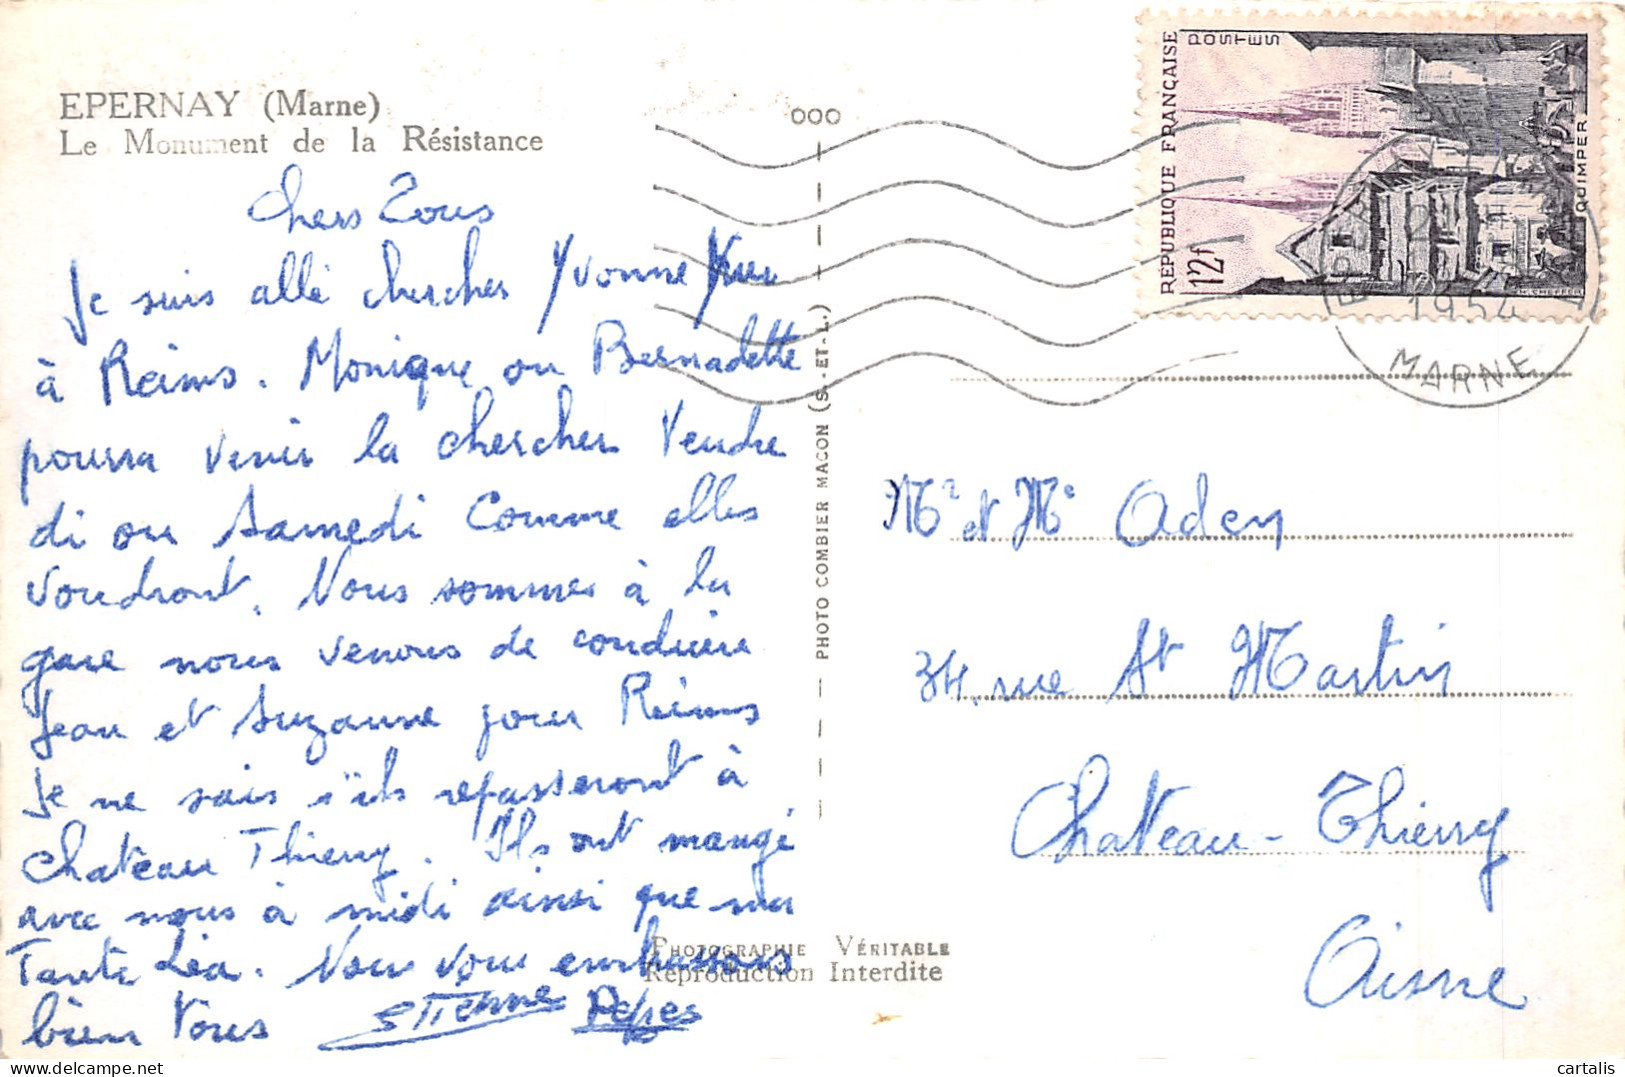 EPERNAY (Marne)
Le Monument de la Résistance
Chers Tous
Je suis allé chercher Yvonne hier
à Reims. Monique ou Bernadette
pourra venir la chercher Vendre
di ou Samedi Comme elles
voudront. Nous sommes à la
gare nous venons de conduire
Jean et Suzanne pour Reims
Je ne sais s'ils repasseront à
Chateau Thierry. Ils ont mangé
avec nous à midi ainsi que ma
Tante Léa. Nous vous embrassons
bien Tous Etienne Pépés
OOO
PHOTO COMBIER MACON (S.-ET-L.)
PHOTOGRAPHIE VÉRITABLE
Reproduction Interdite
RÉPUBLIQUE FRANÇAISE
POSTES
12f
QUIMPER
1954
MARNE
Mr et Me Aden
34, rue St Martin
Chateau-Thierry
Aisne
cartalis